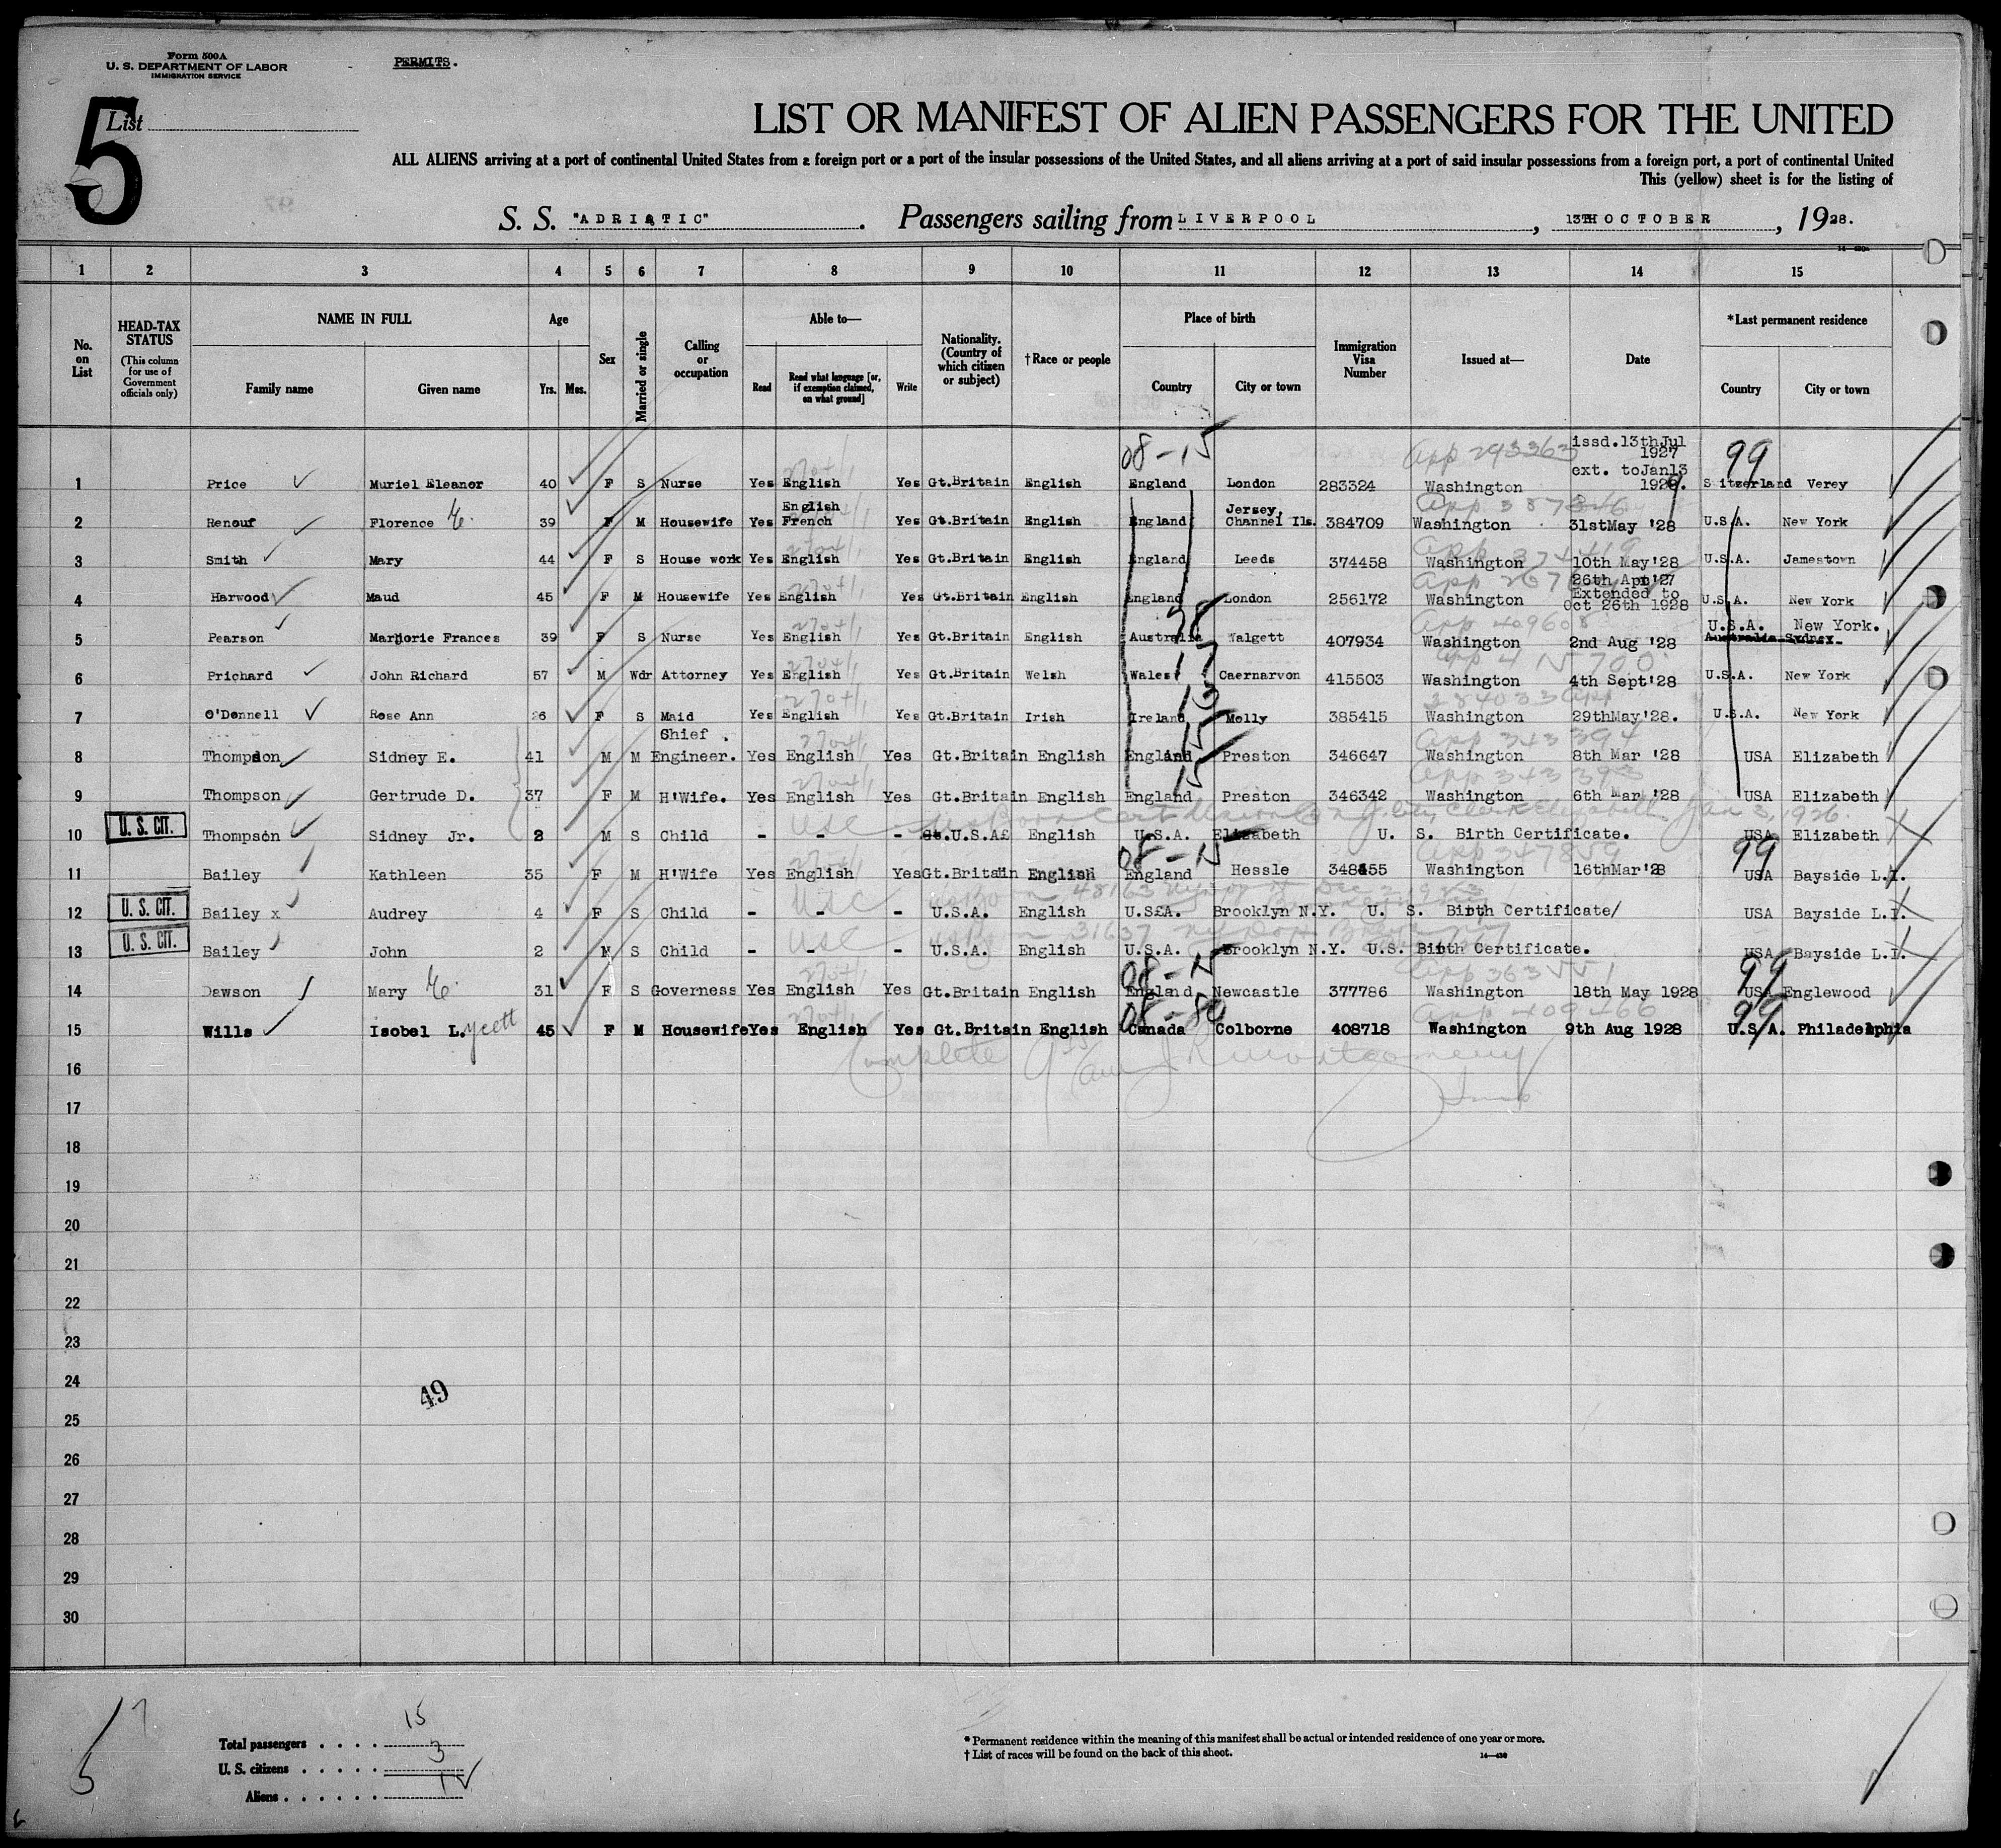 Form 500A
U. S. DEPARTMENT OF LABOR
IMMIGRATION SERVICE
PERMITS.
5
List
LIST OR MANIFEST OF ALIEN PASSENGERS FOR THE UNITED
ALL ALIENS arriving at a port of continental United States from a foreign port or a port of the insular possessions of the United States, and all aliens arriving at a port of said insular possessions from a foreign port, a port of continental United
This (yellow) sheet is for the listing of
S. S. "ADRIATIC". Passengers sailing from LIVERPOOL, 13TH OCTOBER, 1928.
1 2 3 4 5 6 7 8 9 10 11 12 13 14 15
No. on List
HEAD-TAX STATUS (This column for use of Government officials only)
NAME IN FULL Family name Given name
Age Yrs. Mos.
Sex
Married or single
Calling or occupation
Able to— Read Read what language [or, if exemption claimed, on what ground] Write
Nationality. (Country of which citizen or subject)
†Race or people
Place of birth Country City or town
Immigration Visa Number
Issued at—
Date
*Last permanent residence Country City or town
08-15 App 293363 issd.13thJul 1927 99
1 Price Muriel Eleanor 40 F S Nurse Yes English Yes Gt.Britain English England London 283324 Washington ext. toJan13 1929. Sitzerland Verey
2 Renouf Florence E. 39 F M Housewife Yes English French Yes Gt.Britain English England Jersey, Channel Ils. 384709 Washington 31stMay '28 U.S.A. New York
3 Smith Mary 44 F S House work Yes English Yes Gt.Britain English England Leeds 374458 Washington 10th May'28 U.S.A. Jamestown
4 Harwood Maud 45 F M Housewife Yes English Yes Gt.Britain English England London 256172 Washington 26th Apr'27 Extended to Oct 26th 1928 U.S.A. New York
5 Pearson Marjorie Frances 39 F S Nurse Yes English Yes Gt.Britain English Australia Walgett 407934 Washington 2nd Aug '28 U.S.A. New York. Australia Sydney.
6 Prichard John Richard 57 M Wdr Attorney Yes English Yes Gt.Britain Welsh Wales Caernarvon 415503 Washington 4th Sept'28 U.S.A. New York
7 O'Donnell Rose Ann 26 F S Maid Yes English Yes Gt.Britain Irish Ireland Molly 385415 Washington 29thMay'28. U.S.A. New York
8 Thompson Sidney E. 41 M M Chief Engineer. Yes English Yes Gt.Britain English England Preston 346647 Washington 8th Mar '28 USA Elizabeth
9 Thompson Gertrude D. 37 F M H'Wife. Yes English Yes Gt.Britain English England Preston 346342 Washington 6th Mar '28 USA Elizabeth
U. S. CIT.
10 Thompson Sidney Jr. 2 M S Child - USC - - U.S.A. English U.S.A. Elizabeth U. S. Birth Certificate. USA Elizabeth
08-15 App 347859 99
11 Bailey Kathleen 35 F M H'Wife Yes English Yes Gt.Britain English England Hessle 348455 Washington 16thMar'28 USA Bayside L.I.
U. S. CIT.
12 Bailey x Audrey 4 F S Child - USC - - U.S.A. English U.S.A. Brooklyn N.Y. U. S. Birth Certificate/ USA Bayside L.I.
U. S. CIT.
13 Bailey John 2 M S Child - USC - - U.S.A. English U.S.A. Brooklyn N.Y. U.S. Birth Certificate. USA Bayside L.I.
08-15 99
14 Dawson Mary E. 31 F S Governess Yes English Yes Gt.Britain English England Newcastle 377786 Washington 18th May 1928 USA Englewood
08-80 App 409466 99
15 Wills Isobel L.ycett 45 F M Housewife Yes English Yes Gt.Britain English Canada Colborne 408718 Washington 9th Aug 1928 U.S.A. Philadelphia
16 Complete
17
18
19
20
21
22
23
24
49
25
26
27
28
29
30
Total passengers . . . . 15
U. S. citizens . . . . . 3
Aliens . . . . . . 12
* Permanent residence within the meaning of this manifest shall be actual or intended residence of one year or more.
† List of races will be found on the back of this sheet.